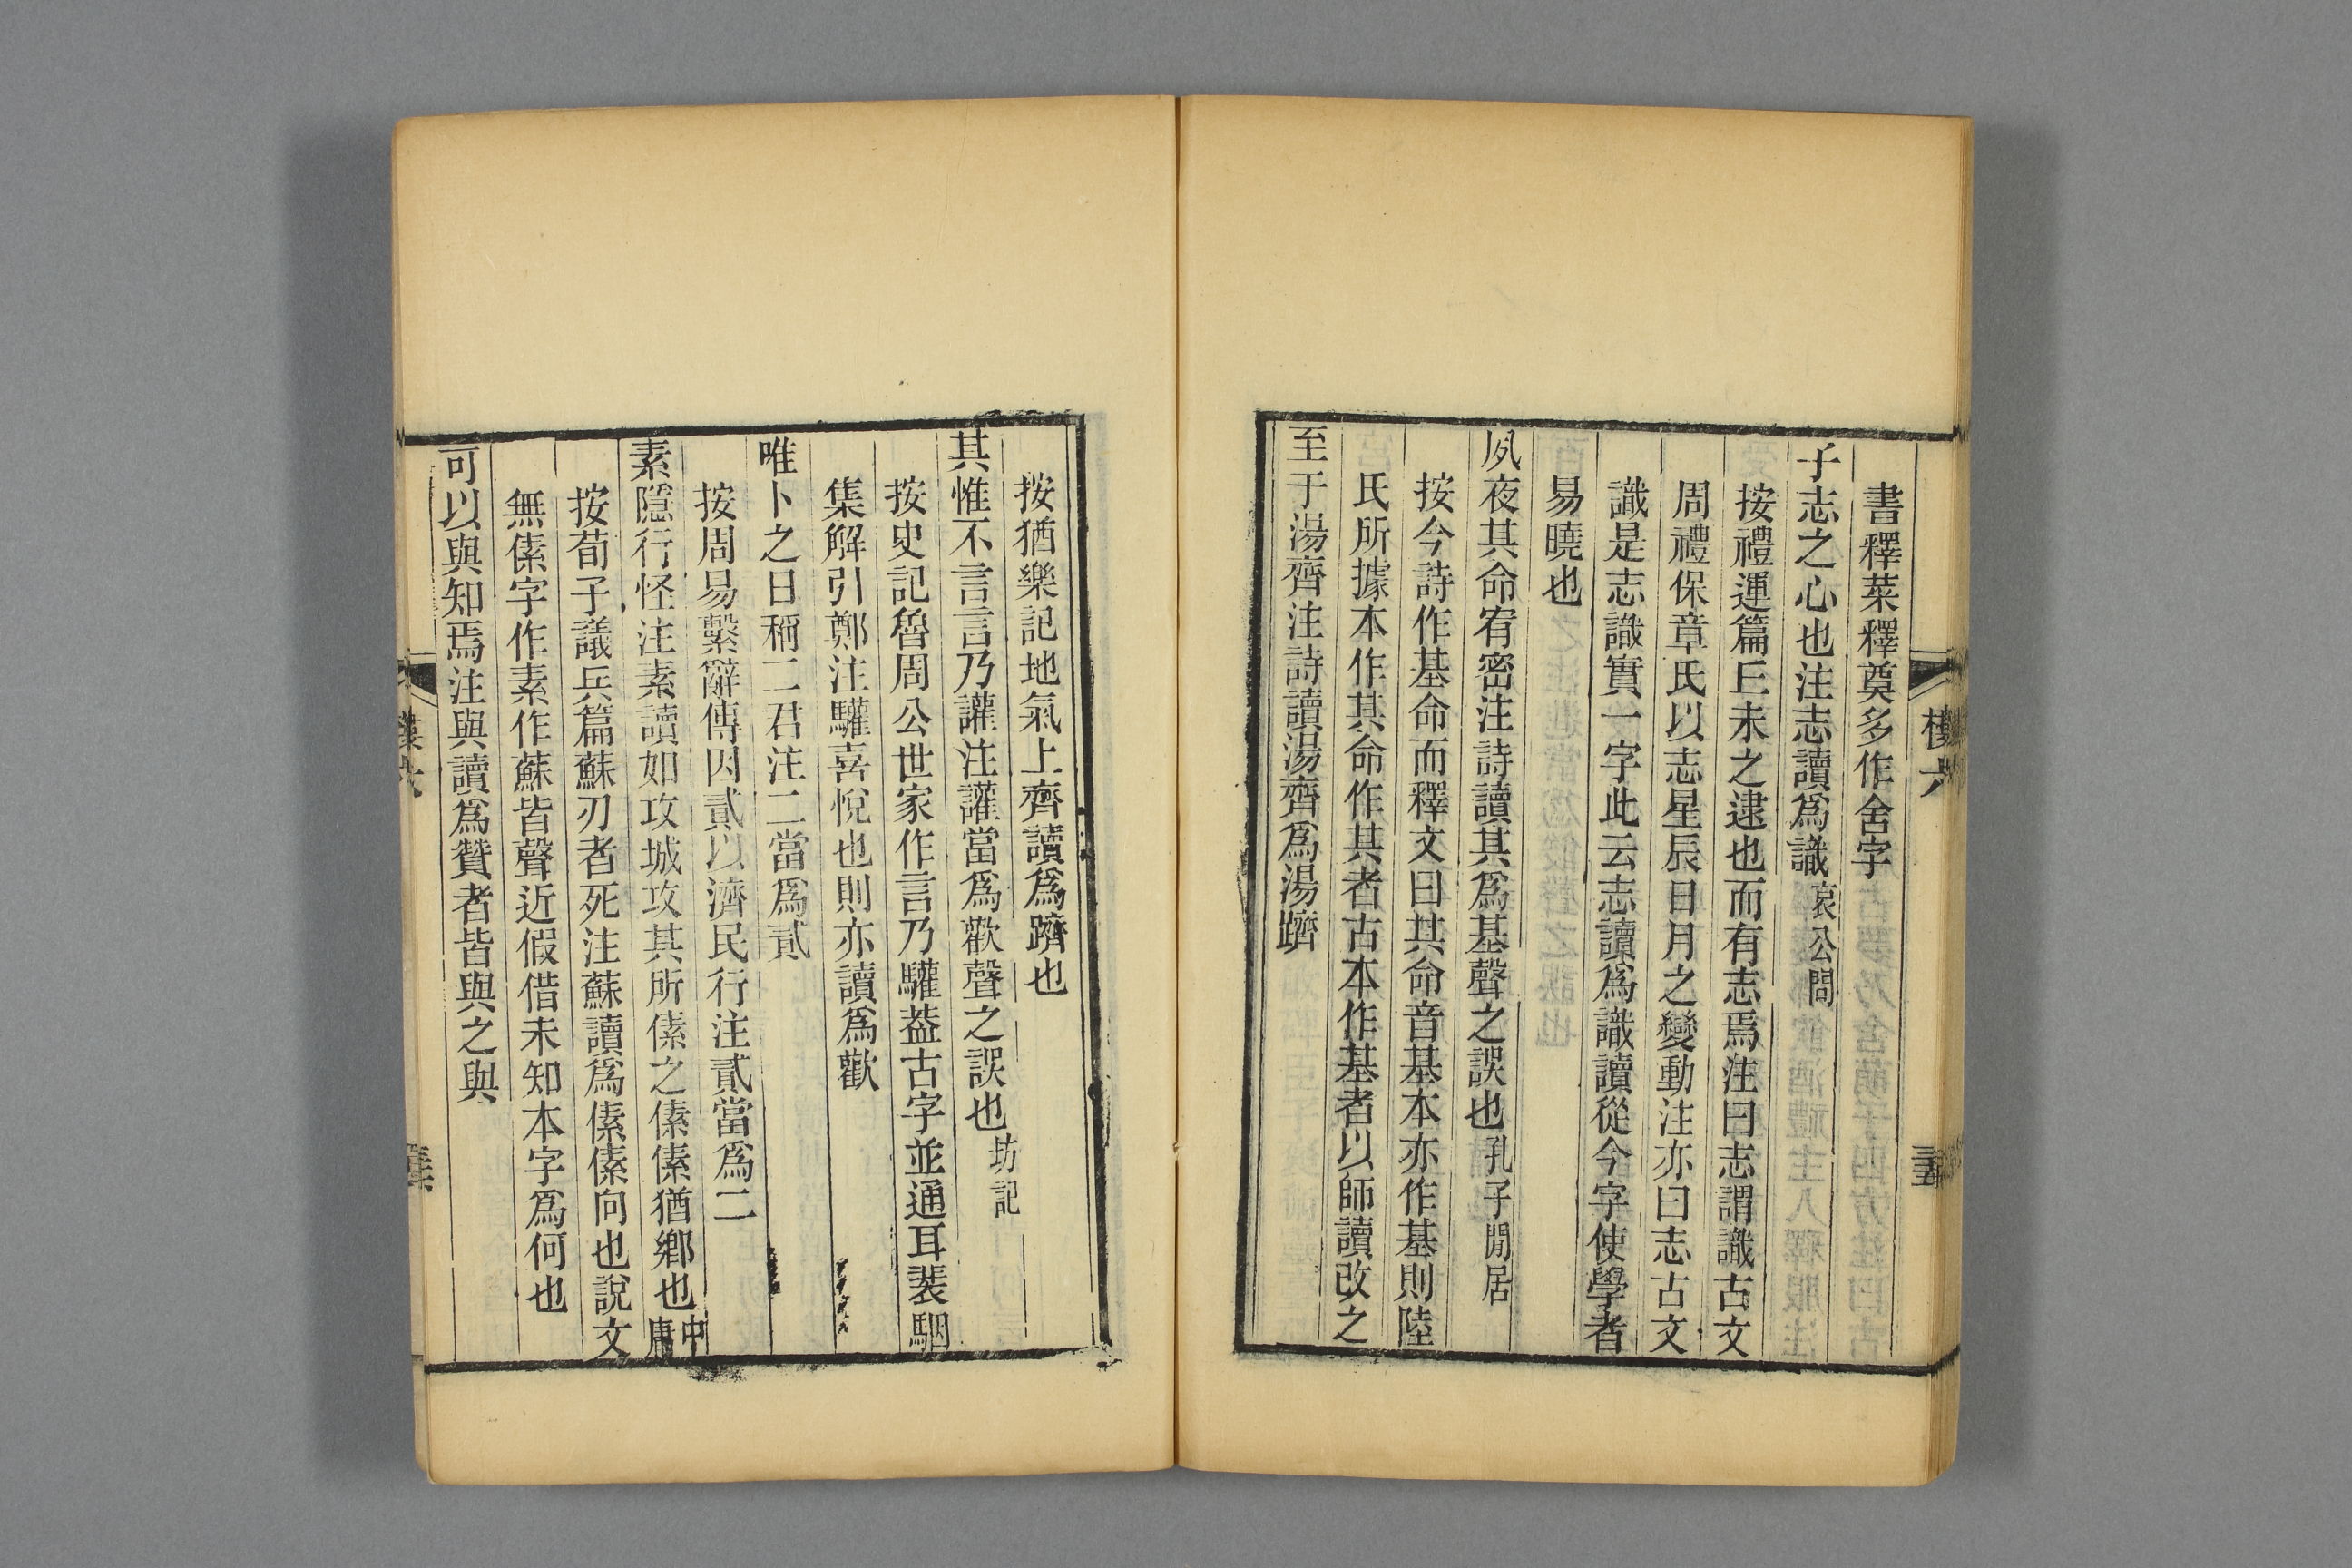 書釋菜釋奠多作舍字
子志之心也注志讀爲識哀公問
按禮運篇丘未之逮也而有志焉注曰志謂識古文
周禮保章氏以志星辰日月之變動注亦曰志古文
識是志識實一字此云志讀爲識讀從今字使學者
易曉也
夙夜其命宥密注詩讀其爲基聲之誤也孔子閒居
按今詩作基命而釋文曰其命音基本亦作基則陸
氏所據本作其命作其者古本作基者以師讀改之
至于湯齊注詩讀湯齊爲湯躋
按猶樂記地氣上齊讀爲躋也
其惟不言言乃讙注讙當爲歡聲之誤也坊記
按史記魯周公世家作言乃驩葢古字並通耳裴駰
集解引鄭注驩喜悅也則亦讀爲歡
唯卜之日稱二君注二當爲貳
按周易繫辭傳因貳以濟民行注貳當爲二
素隱行怪注素讀如攻城攻其所傃之傃傃猶鄉也中庸
按荀子議兵篇蘇刃者死注蘇讀爲傃傃向也說文
無傃字作素作蘇皆聲近假借未知本字爲何也
可以與知焉注與讀爲贊者皆與之與